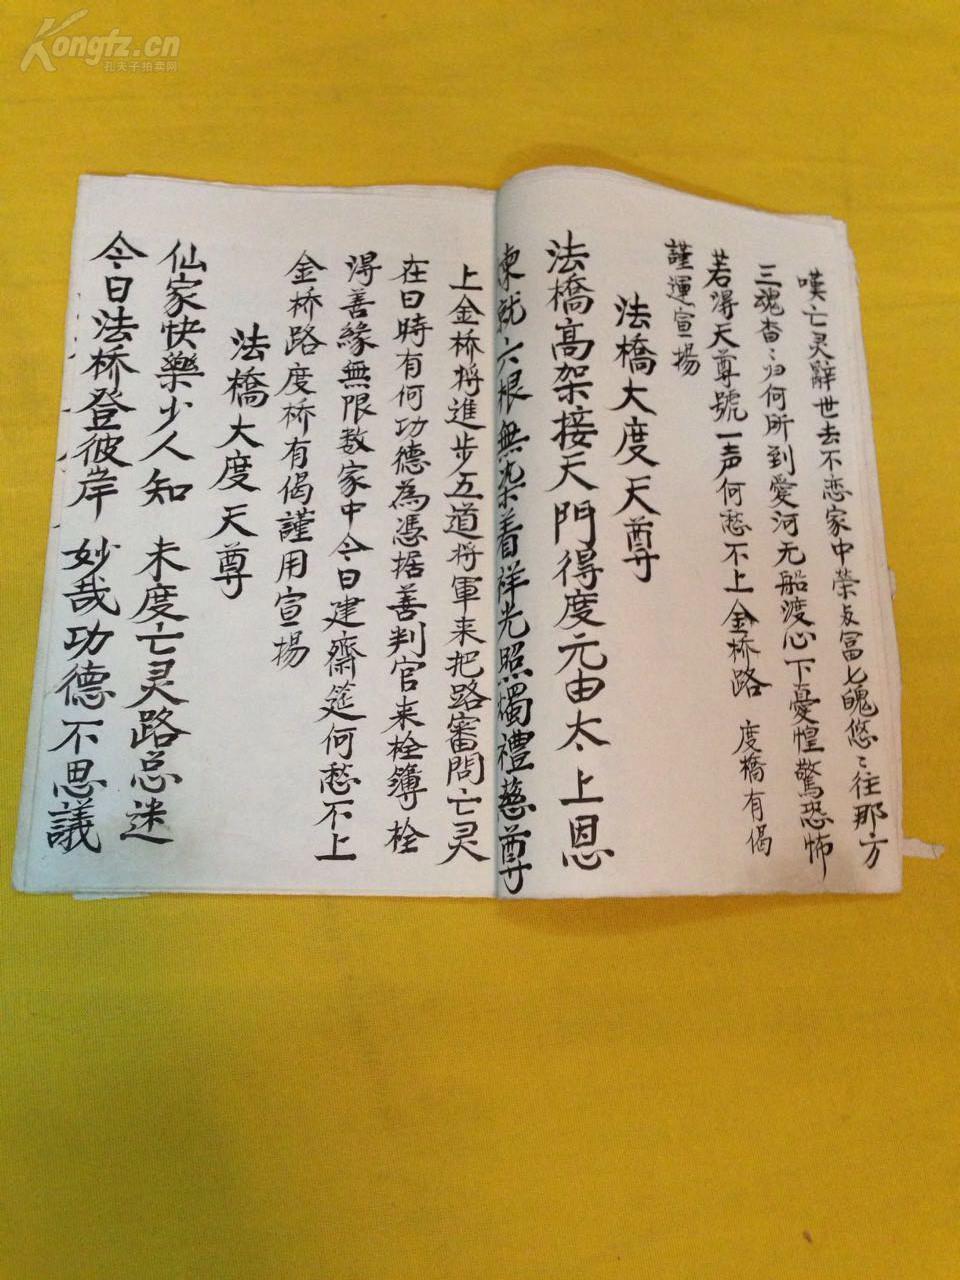 嘆亡灵辭世去不恋家中荣与冨七魄悠〻往那方
三魂杳〻归何所到愛河无船渡心下憂惶驚恐怖
若淂天尊號一声何愁不上金桥路 度橋有偈
謹運宣揚
法橋大度天尊
法橋高架接天門得度元由太上恩
煉就六根無染着祥光照燭禮慈尊
上金桥将進步五道将軍来把路審問亡灵
在日時有何功德為憑据善判官来栓簿栓
淂善緣無限数家中今日建齋筵何愁不上
金桥路度桥有偈謹用宣揚
法橋大度天尊
仙家快樂少人知 未度亡灵路总迷
今日法桥登彼岸 妙哉功德不思議
Kongfz.cn
孔夫子拍卖网